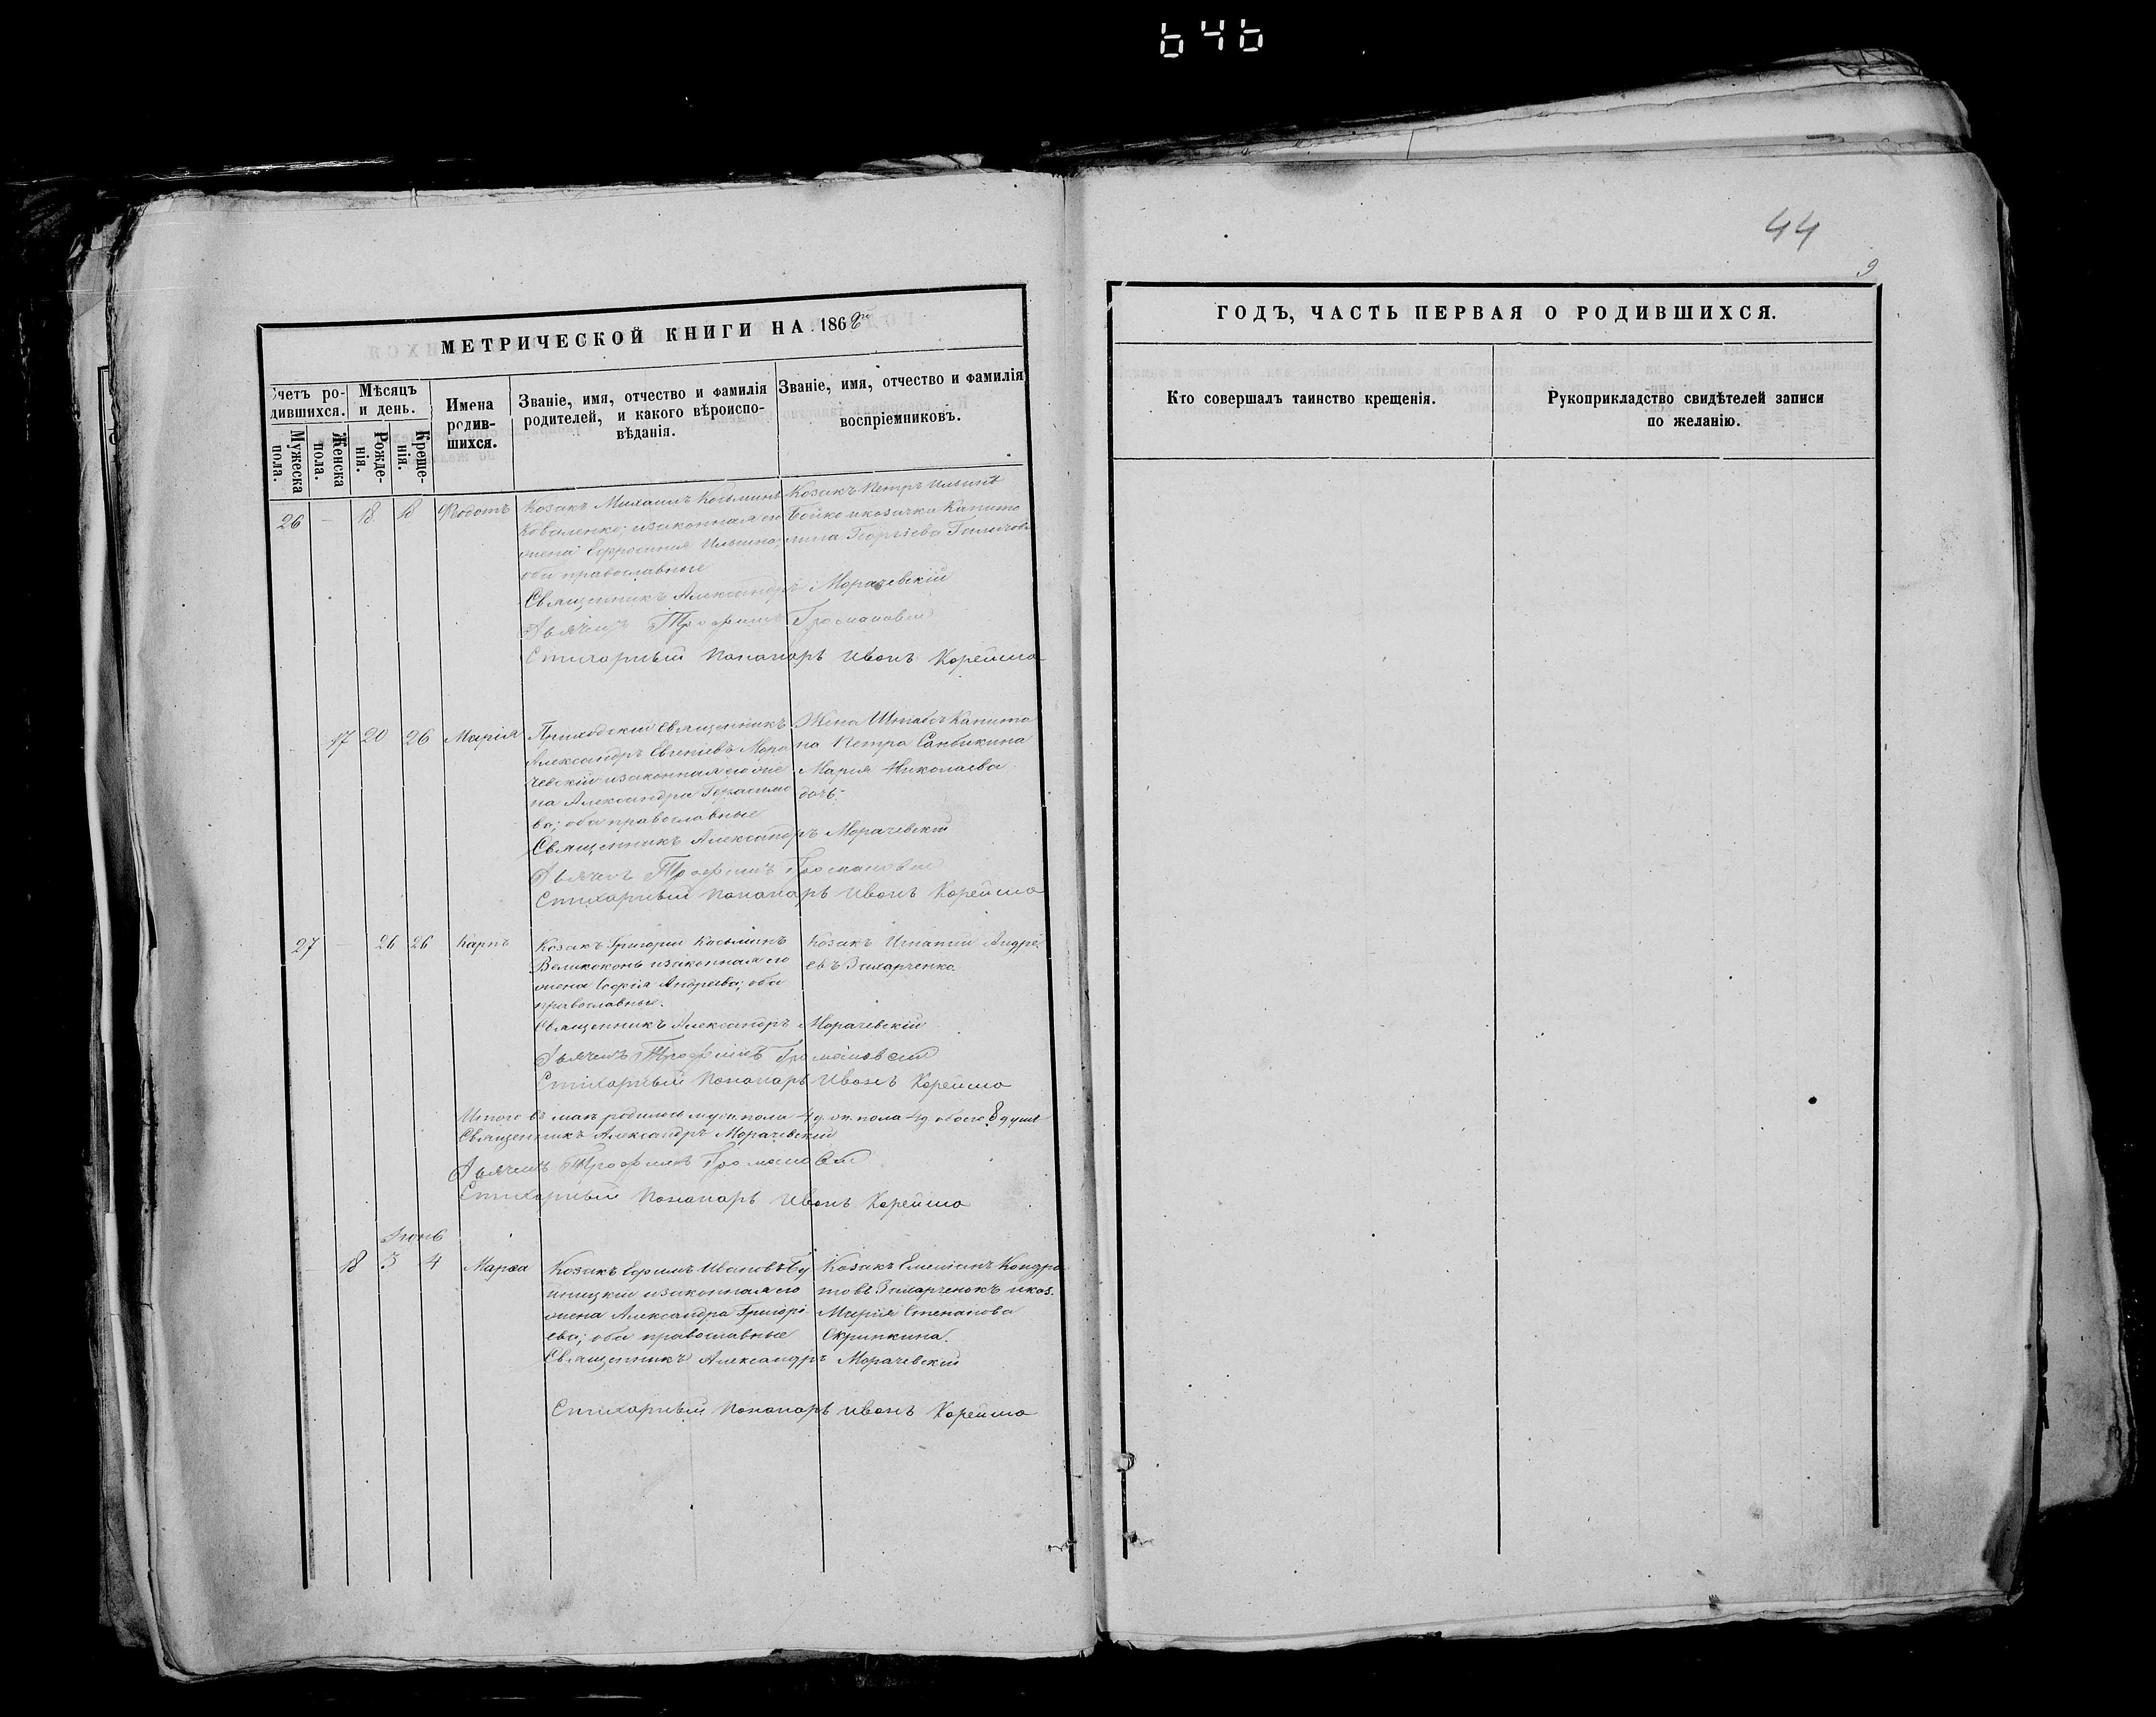 646
44
9
МЕТРИЧЕСКОЙ КНИГИ НА 186
ГОДЪ, ЧАСТЬ ПЕРВАЯ О РОДИВШИХСЯ.
Счетъ ро-
дившихся.
Мужеска
пола.
Женска
пола.
Мѣсяцъ
и день.
Рожде-
нія.
Креще-
нія.
Имена
родив-
шихся.
Званіе, имя, отчество и фамилія
родителей, и какого вѣроиспо-
вѣданія.
Званіе, имя, отчество и фамилія
воспріемниковъ.
Кто совершалъ таинство крещенія.
Рукоприкладство свидѣтелей записи
по желанію.
26 — 18 18 Ѳодотъ
Козакъ Михаилъ Косьминъ
Коваленко; и законная его
жена Евфросинія Ильина;
оба православные
Козакъ Петръ Ильинъ
Бойко и козачка Капито
лина Георгіева
Священникъ Александръ Морачевскій
Дьячекъ Трофимъ Громановскій
Стихарный Пономарь Иванъ Корейша
17 20 26 Марія
Приходскій Священникъ
Александръ Евгеніевъ Мора
чевскій и законная его же
на Александра Герасимо
ва; оба православные
Жена Штабсъ Капита
на Петра Санбикина
Марія Николаева
дочь.
Священникъ Александръ Морачевскій
Дьячекъ Трофимъ Громановскій
Стихарный Пономарь Иванъ Корейша
27 — 26 26 Карпъ
Козакъ Григорій Косьминъ
Великоконь и законная его
жена Софія Андреева; оба
православные.
Козакъ Игнатій Андре
евъ Захарченко.
Священникъ Александръ Морачевскій
Дьячекъ Трофимъ Громановскій
Стихарный Пономарь Иванъ Корейша
Итого въ маѣ родилось муж. пола 4 д. ж. пола 4 д обоего 8 душъ
Священникъ Александръ Морачевскій
Дьячекъ Трофимъ Громановскій
Стихарный Пономарь Иванъ Корейша
Іюнь
18 3 4 Марѳа
Козакъ Ефимъ Ивановъ Бу
жицкій и законная его
жена Александра Григорі
ева; оба православные
Козакъ Емеліанъ Кондра
товъ Захарченокъ и коз.
Марія Степанова
Скрипкина.
Священникъ Александръ Морачевскій
Стихарный Пономарь Иванъ Корейша